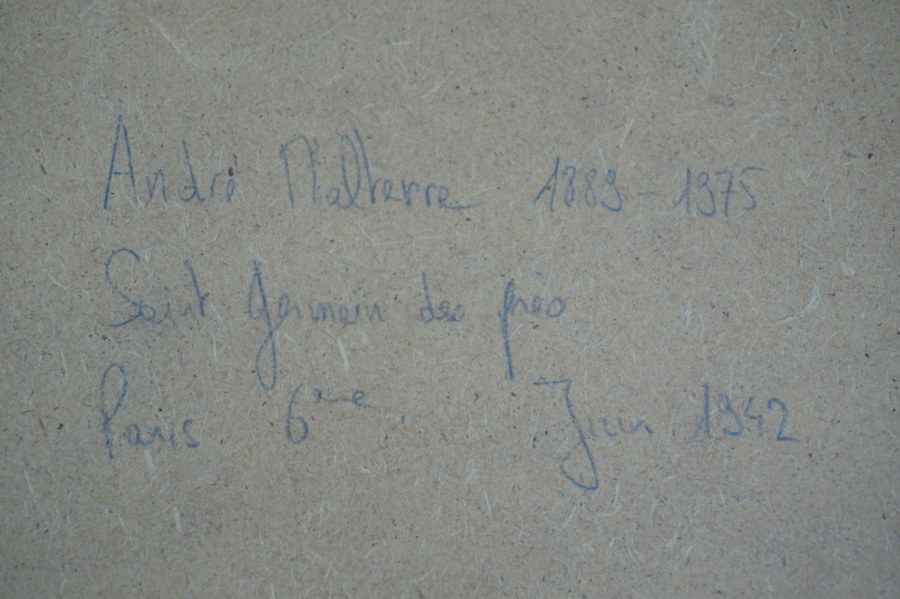 André Malterre 1889 - 1975
Saint Germain des près
Paris 6ème. Juin 1942